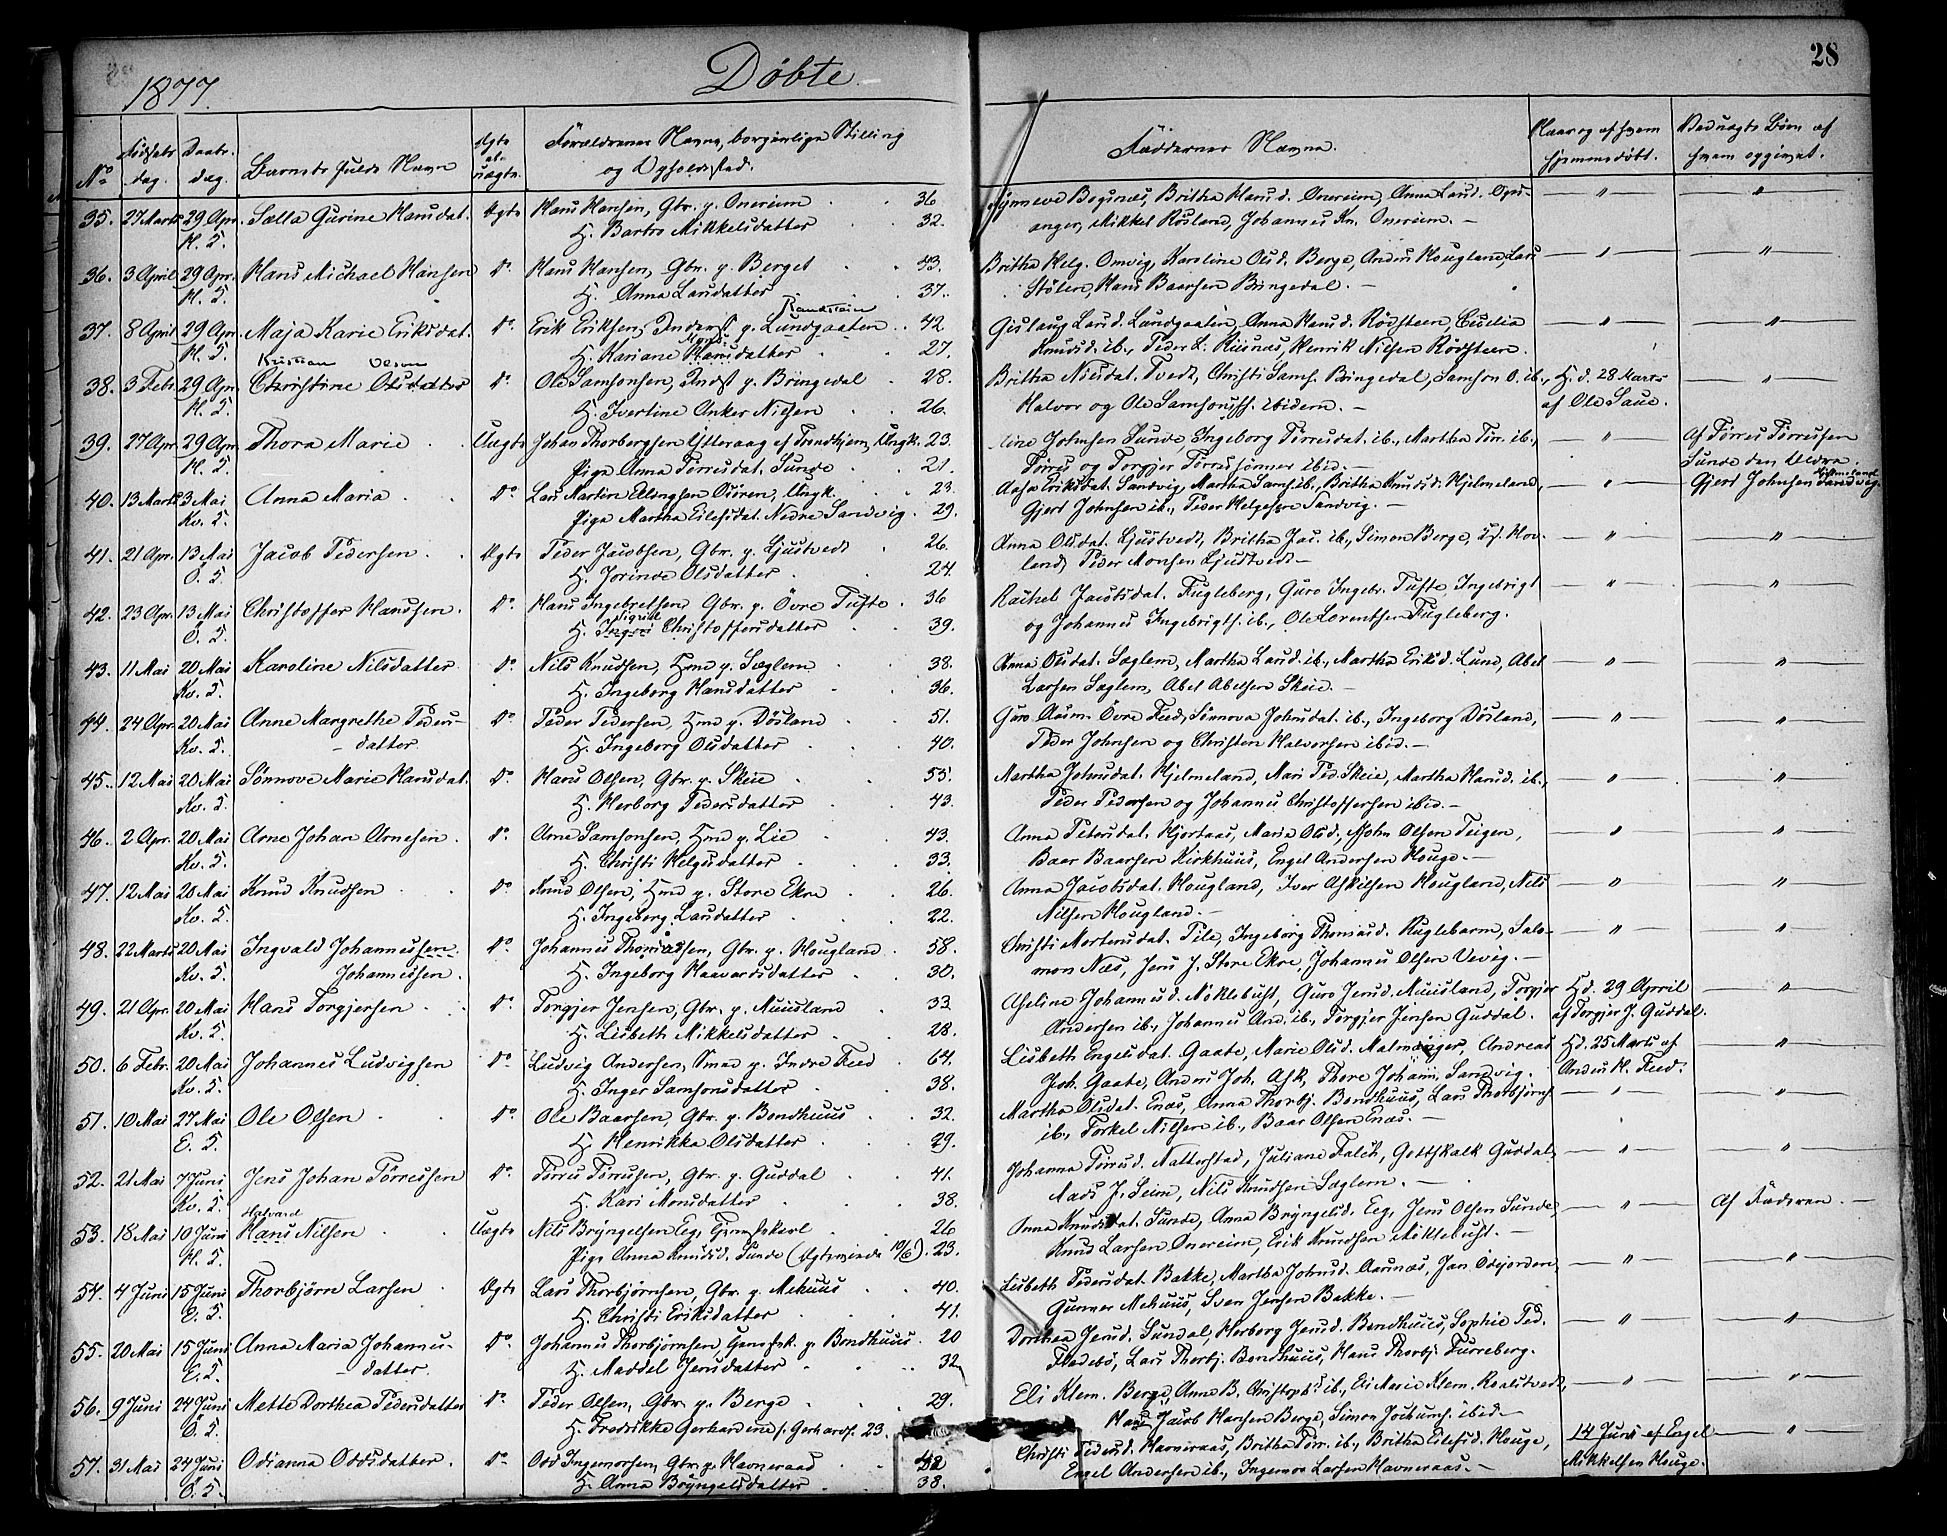 28
1877.
Døbte.
No
Fødsels dag.
Daabs dag.
Barnets fulde Navn
Ægte el. uægte.
Forældrenes Navne, borgerlige Stilling og Opholdssted.
Faddernes Navne.
Naar og af hvem hjemmedøbt.
Ved uægte Børn af hvem opgivet.
35. 27 Marts 29 Apr. Salla Gurine Hansdat. Ægte Hans Hansen, Gbr. p. Onereim 36
H. 5. H. Barbro Mikkelsdatter 32.
Synneve Bogsnæs, Britha Hansd. Onereim, Anna Larsd. Ops-
anger, Mikkel Røsland, Johannes Kn. Onereim. —
36. 3 April 29 Apr. Hans Michael Hansen Do Hans Hansen, Gbr. p. Berget 43.
H. 5. H. Anna Larsdatter 37.
Britha Helg. Omvig, Karoline Olsd. Berge, Anders Hougland, Lars
Stølen, Hans Baarsen Bringedal. —
37. 8 April 29 Apr. Maja Karie Eriksdat. Do Erik Eriksen, Inderst p. Lundgaaten 42
H. 5. H. Kariane Hansdatter 27.
Gislaug Larsd. Lundgaaten, Anna Hansd. Rødsteen,
Knudsd. ib., Peder L. Riisnæs, Henrik Nilsen Rødsteen.
Kristian Olsen
38. 3 Feb. 29 Apr. Christine Olsdatter Do Ole Samsonsen, Indst p. Bringedal 28.
H. 5. H. Ivertine Anker Nilsen 26.
Britha Nilsdat. Tvedt, Christi Sams. Bringedal, Samson O. ib., H. d. 28 Marts
Halvor og Ole Samsons. ibidem. — af Ole Saue.
39. 27 Apr. 29 Apr. Thora Marie Uægte Johan Thorbergsen Ytteraag af Trondhjem, Ungk. 23.
H. 5. Pige Anna Tørresdat. Sunde 21.
Johnsen Sunde, Ingeborg Tørresdat. ib., Martha Tør. ib., Af Tørres Tørresen
Tørres og Torgjer Tørressønner ibid. — Sunde den Ældre.
40. 13 Marts 3 Mai Anna Maria Do Lars Martin Ellingsen Osøren, Ungk. 23.
Kv. 5. Pige Martha Eilefsdat. Nedre Sandvig. 29.
Aasa Eriksdat. Sandvig, Martha Sams. ib., Britha Knudsd. Hjelmeland, Gjert Johnsen Sandvig.
Gjert Johnsen ib., Peder Helgesen Sandvig. —
41. 21 Apr. 13 Mai Jacob Pedersen Ægte Peder Jacobsen, Gbr. p. Ljustvedt 26.
Ö. 5. H. Jorinde Olsdatter 24.
Anna Olsdat. Ljustvedt, Britha Jac. ib., Simon Berge, Hov-
land, Peder Monsen Ljustvedt —
42. 23 Apr. 13 Mai Christoffer Hanssen. Do Hans Ingebretsen Gbr. p. Övre Tufte 36
Ö. 5. H. Christoffersdatter 39.
Rachel Jacobsdat. Fugleberg, Guro Ingebr. Tufte, Ingebrigt
og Johannes Ingebrigts. ib., Ole Lorentsen Fugleberg.
43. 11 Mai 20 Mai Karoline Nilsdatter Do Nils Knudsen, Hmd p. Sæglem 38.
Kv. 5. H. Ingeborg Hansdatter 36.
Anna Olsdat. Sæglem, Martha Larsd. ib., Martha Eriksd. Lund, Abel
Larsen Sæglem, Abel Abelsen Skeie. —
44. 24 Apr. 20 Mai Anne Margrethe Peders- Do Peder Pedersen, Hmd p. Døsland 51.
Kv. 5. datter H. Ingeborg Olsdatter 40.
Guro Aasm. Övre Feed, Sønnova Johnsdat. ib., Ingeborg Døsland,
Peder Johnsen og Christen Halvorsen ibid. —
45. 12 Mai 20 Mai Sønnove Marie Hansdat. Do Hans Olsen, Gbr. p. Skeie 55.
Kv. 5. H. Herborg Pedersdatter 43.
Martha Johnsdat. Hjelmeland, Mari Ped. Skeie, Martha Hansd. ib.,
Peder Pedersen og Johannes Christoffersen ibid. —
46. 2 Apr. 20 Mai Arne Johan Arnesen. Do Arne Samsonsen, Hmd p. Lie 43.
Kv. 5. H. Christi Helgesdatter 33.
Anna Petersdat. Hjortaas, Maria Olsd., John Olsen Teigen,
Baar Baarsen Kirkhuus, Engel Andersen Houge. —
47. 12 Mai 20 Mai Knud Knudsen Do Knud Olsen, Hmd p. Store Ekre 26.
Kv. 5. H. Ingeborg Larsdatter 22.
Anna Jacobsdat. Hougland, Iver Askilsen Hougland, Nils
Nilsen Hougland. —
48. 22 Marts 20 Mai Ingvald Johannessen Do Johannes Thomassen, Gbr. p. Hougland 58.
Kv. 5. Johannessen. H. Ingeborg Haavardsdatter 30.
Christi Mortensdat. Pile, Ingeborg Thomasd. Kuglebarm, Salo-
mon Næs, Jens J. Store Ekre, Johannes Olsen Vevig. —
49. 21 Apr. 20 Mai Hans Torgjersen Do Torgjer Jensen, Gbr. p. Muusland 33
Kv. 5. H. Lisbeth Mikkelsdatter 28.
Aseline Johannesd. Møklebust, Guro Jensd. Muusland, Torgjer Hd. 29 April
Andersen ib., Johannes And. ib., Torgjer Jensen Guddal. af Torgjer J. Guddal.
50. 6 Febr. 20 Mai Johannes Ludvigsen Do Ludvig Andersen, Smed p. Indre Feed 64.
Kv. 5. H. Inger Samsonsdatter 38.
Lisbeth Engelsdat. Gaate, Marie Olsd. Malmanger, Andreas Hd. 25 Marts af
Joh. Gaate, Anders Joh. Ask, Thore Johann. Sandvig. Anders H. Feed.
51. 10 Mai 27 Mai Ole Olsen Do Ole Baarsen, Gbr. p. Bondhuus 32
E. 5. H. Henrikka Olsdatter 29.
Martha Olsdat. Enæs, Anna Thorbj. Bondhuus, Lars Thorbjørns.
ib., Torkel Nilsen ib., Baar Olsen Enæs. —
52. 21 Mai 7 Juni Jens Johan Tørressen Do Tørres Tørressen, Gbr. p. Guddal 41.
Kv. 5. H. Kari Monsdatter 38.
Johanna Tørresd. Natterstad, Juliane Falch, Gottskalk Guddal,
Mads J. Seim, Nils Knudsen Sæglem. —
Halvard
53. 18 Mai 10 Juni Hans Nilsen Uægte Nils Bryngelsen Eeg, Tjenestkarl 26
H. 5. Pige Anna Knudsd. Sunde (Ægteviede 10/6). 23.
Anna Knudsdat. Sunde, Anna Brÿngelsd. Eeg, Jens Olsen Sunde, Af Faderen. —
Knud Larsen Onereim, Erik Knudsen Møklebust. —
54. 4 Juni 15 Juni Thorbjörn Larsen Ægte Lars Thorbjørnsen, Gbr. p. Mehuus 40.
E. 5. H. Christi Eriksdatter 41.
Lisbeth Pedersdat. Bakke, Martha Johnsd. Aarnæs, Jan Ödejorden,
Gunner Mehuus, Sven Jensen Bakke. —
55. 20 Mai 15 Juni Anna Maria Johannes- Do Johannes Thorbjørnsen, Gaardsk. p. Bondhuus 20
E. 5. datter. H. Maddel Jensdatter 32
Dorthea Jensd. Sundal, Herborg Jensd. Bondhuus, Sophie Ped.
Fladebø, Lars Thorbj. Bondhuus, Hans Thorbj. Furreberg.
56. 9 Juni 24 Juni Mette Dorthea Pedersdatter Do Peder Olsen, Gbr. p. Berge 29.
Ö. 5. H. Fredrikke Gerhardine f. Gerhards. 23.
Eli Klem. Berge, Anne B. Christophs. ib., Eli Marie Klem. Roaldstvedt,
Hans Jacob Hansen Berge, Simon Jocums. ibid —
57. 31 Mai 24 Juni Odianna Oddsdatter. Do Odd Ingemorsen, Gbr. p. Havneraas
Ö. 5. H. Anna Brÿngelsdatter 38.
Christi Pedersd. Havneraas, Britha Tørr. ib., Britha Eilefsd. Houge, 14 Juni af Engel
Engel Andersen ib., Ingemor Larsen Havneraas. — Mikkelsen Houge.